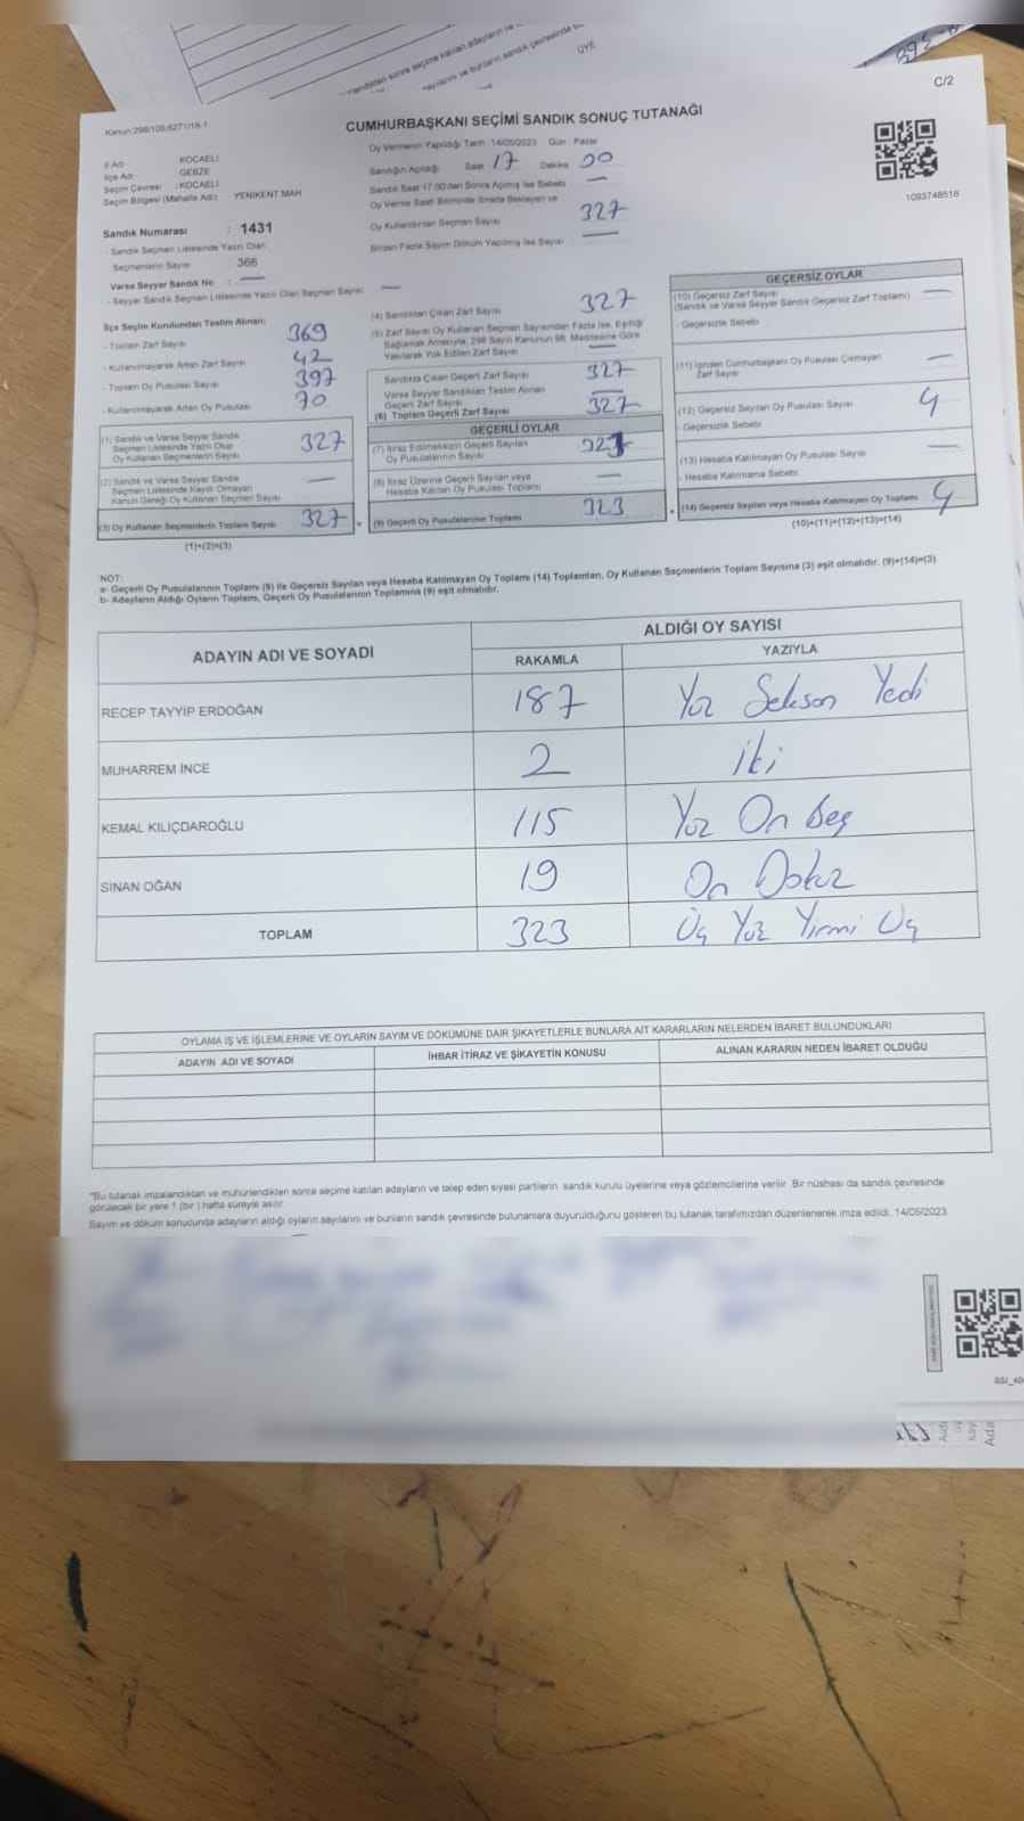 ÜYE
C/2
CUMHURBAŞKANI SEÇİMİ SANDIK SONUÇ TUTANAĞI
Oy Vermenin Yapıldığı Tarih 14/05/2023 Gün : Pazar
İlçe Adı GEBZE
KOCAELİ
Seçim Çevresi : KOCAELİ
Seçim Bölgesi (Mahalle Adı) YENİKENT MAH
Sandığın Açıldığı Saat 17 Dakika 00
1093748516
Sandık Numarası : 1431
Sandık Seçmen Listesinde Yazılı Olan
Seçmenlerin Sayısı 366
Varsa Seyyar Sandık No : —
- Seyyar Sandık Seçmen Listesinde Yazılı Olan Seçmen Sayısı —
Sandık Saat 17.00'den Sonra Açılmış İse Sebebi —
Oy Kullandırılan Seçmen Sayısı 327
Birden Fazla Sayım Döküm Yapılmış İse Sayısı —
İlçe Seçim Kurulundan Teslim Alınan:
- Toplam Zarf Sayısı 369
- Kullanılmayarak Artan Zarf Sayısı 42
- Toplam Oy Pusulası Sayısı 397
- Kullanılmayarak Artan Oy Pusulası 70
(1) Sandık ve Varsa Seyyar Sandık
Seçmen Listesinde Yazılı Olup
Oy Kullanan Seçmenlerin Sayısı 327
(2) Sandık ve Varsa Seyyar Sandık
Seçmen Listesinde Kayıtlı Olmayan
Kanun Gereği Oy Kullanan Seçmen Sayısı —
(3) Oy Kullanan Seçmenlerin Toplam Sayısı 327
(1)+(2)=(3)
(4) Sandıktan Çıkan Zarf Sayısı 327
(5) Zarf Sayısı Oy Kullanan Seçmen Sayısından Fazla İse, Eşitliği
Sağlamak Amacıyla, 298 Sayılı Kanunun 98. Maddesine Göre
Yakılarak Yok Edilen Zarf Sayısı —
Sandıkta Çıkan Geçerli Zarf Sayısı 327
Varsa Seyyar Sandıktan Teslim Alınan
Geçerli Zarf Sayısı —
(6) Toplam Geçerli Zarf Sayısı 327
GEÇERLİ OYLAR
(7) İtiraz Edilmeksizin Geçerli Sayılan
Oy Pusulalarının Sayısı 323
(8) İtiraz Üzerine Geçerli Sayılan veya
Hesaba Katılan Oy Pusulası Toplamı —
(9) Geçerli Oy Pusulalarının Toplamı 323
GEÇERSİZ OYLAR
(10) Geçersiz Zarf Sayısı —
(Sandık ve Varsa Seyyar Sandık Geçersiz Zarf Toplamı)
- Geçersizlik Sebebi
(11) İçinden Cumhurbaşkanı Oy Pusulası Çıkmayan
Zarf Sayısı —
(12) Geçersiz Sayılan Oy Pusulası Sayısı 4
- Geçersizlik Sebebi
(13) Hesaba Katılmayan Oy Pusulası Sayısı —
- Hesaba Katılmama Sebebi
(14) Geçersiz Sayılan veya Hesaba Katılmayan Oy Toplamı 4
(10)+(11)+(12)+(13)=(14)
NOT:
a- Geçerli Oy Pusulalarının Toplamı (9) ile Geçersiz Sayılan veya Hesaba Katılmayan Oy Toplamı (14) Toplamları, Oy Kullanan Seçmenlerin Toplam Sayısına (3) eşit olmalıdır. (9)+(14)=(3)
b- Adayların Aldığı Oyların Toplamı, Geçerli Oy Pusulalarının Toplamına (9) eşit olmalıdır.
ADAYIN ADI VE SOYADI
ALDIĞI OY SAYISI
RAKAMLA YAZIYLA
RECEP TAYYİP ERDOĞAN 187 Yüz Seksen Yedi
MUHARREM İNCE 2 iki
KEMAL KILIÇDAROĞLU 115 Yüz On beş
SİNAN OĞAN 19 On Dokuz
TOPLAM 323 Üç Yüz Yirmi Üç
OYLAMA İŞ VE İŞLEMLERİNE VE OYLARIN SAYIM VE DÖKÜMÜNE DAİR ŞİKAYETLERLE BUNLARA AİT KARARLARIN NELERDEN İBARET BULUNDUKLARI
ADAYIN ADI VE SOYADI İHBAR İTİRAZ VE ŞİKAYETİN KONUSU ALINAN KARARIN NEDEN İBARET OLDUĞU
"Bu tutanak imzalandıktan ve mühürlendikten sonra seçime katılan adayların ve talep eden siyasi partilerin sandık kurulu üyelerine veya gözlemcilerine verilir. Bir nüshası da sandık çevresinde
görülecek bir yere 1 (bir) hafta süreyle asılır.
Sayım ve döküm sonucunda adayların aldığı oyların sayılarını ve bunların sandık çevresinde bulunanlara duyurulduğunu gösteren bu tutanak tarafımızdan düzenlenerek imza edildi. 14/05/2023